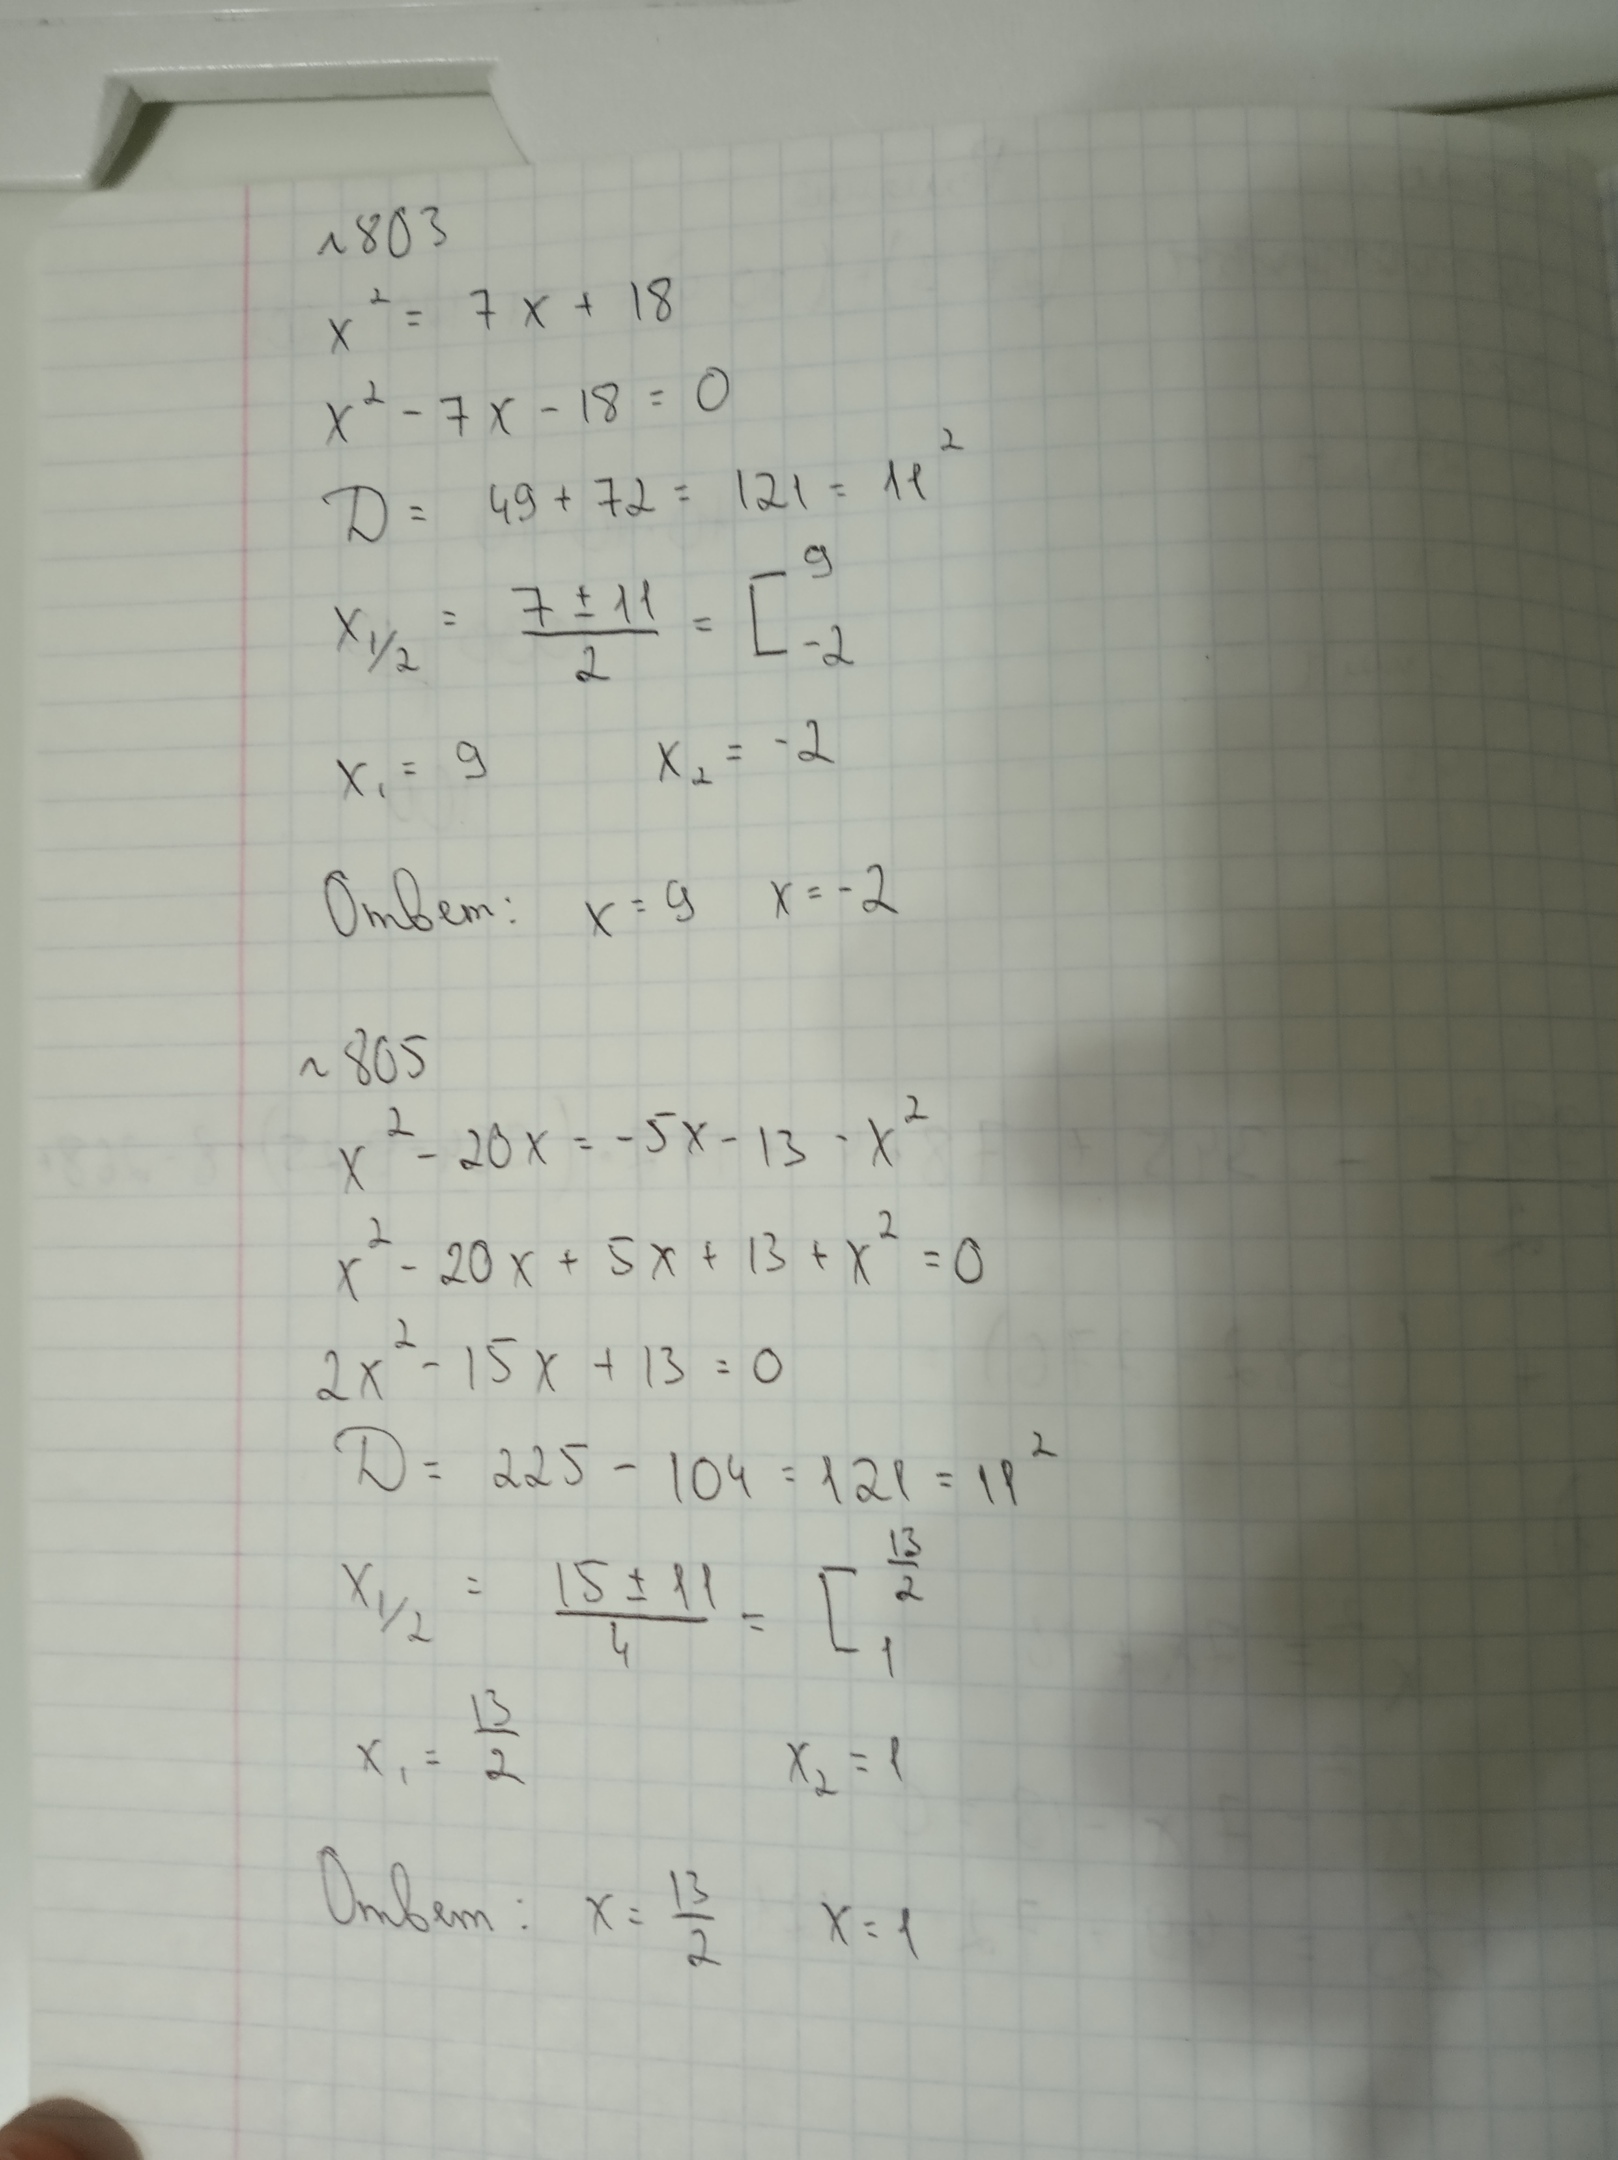 №803
x² = 7x + 18
x² - 7x - 18 = 0
D = 49 + 72 = 121 = 11²
x₁/₂ = (7 ± 11)/2 = [ 9 -2
x₁ = 9 x₂ = -2
Ответ: x = 9 x = -2
№805
x² - 20x = -5x - 13 - x²
x² - 20x + 5x + 13 + x² = 0
2x² - 15x + 13 = 0
D = 225 - 104 = 121 = 11²
x₁/₂ = (15 ± 11)/4 = [ 13/2 1
x₁ = 13/2 x₂ = 1
Ответ: x = 13/2 x = 1